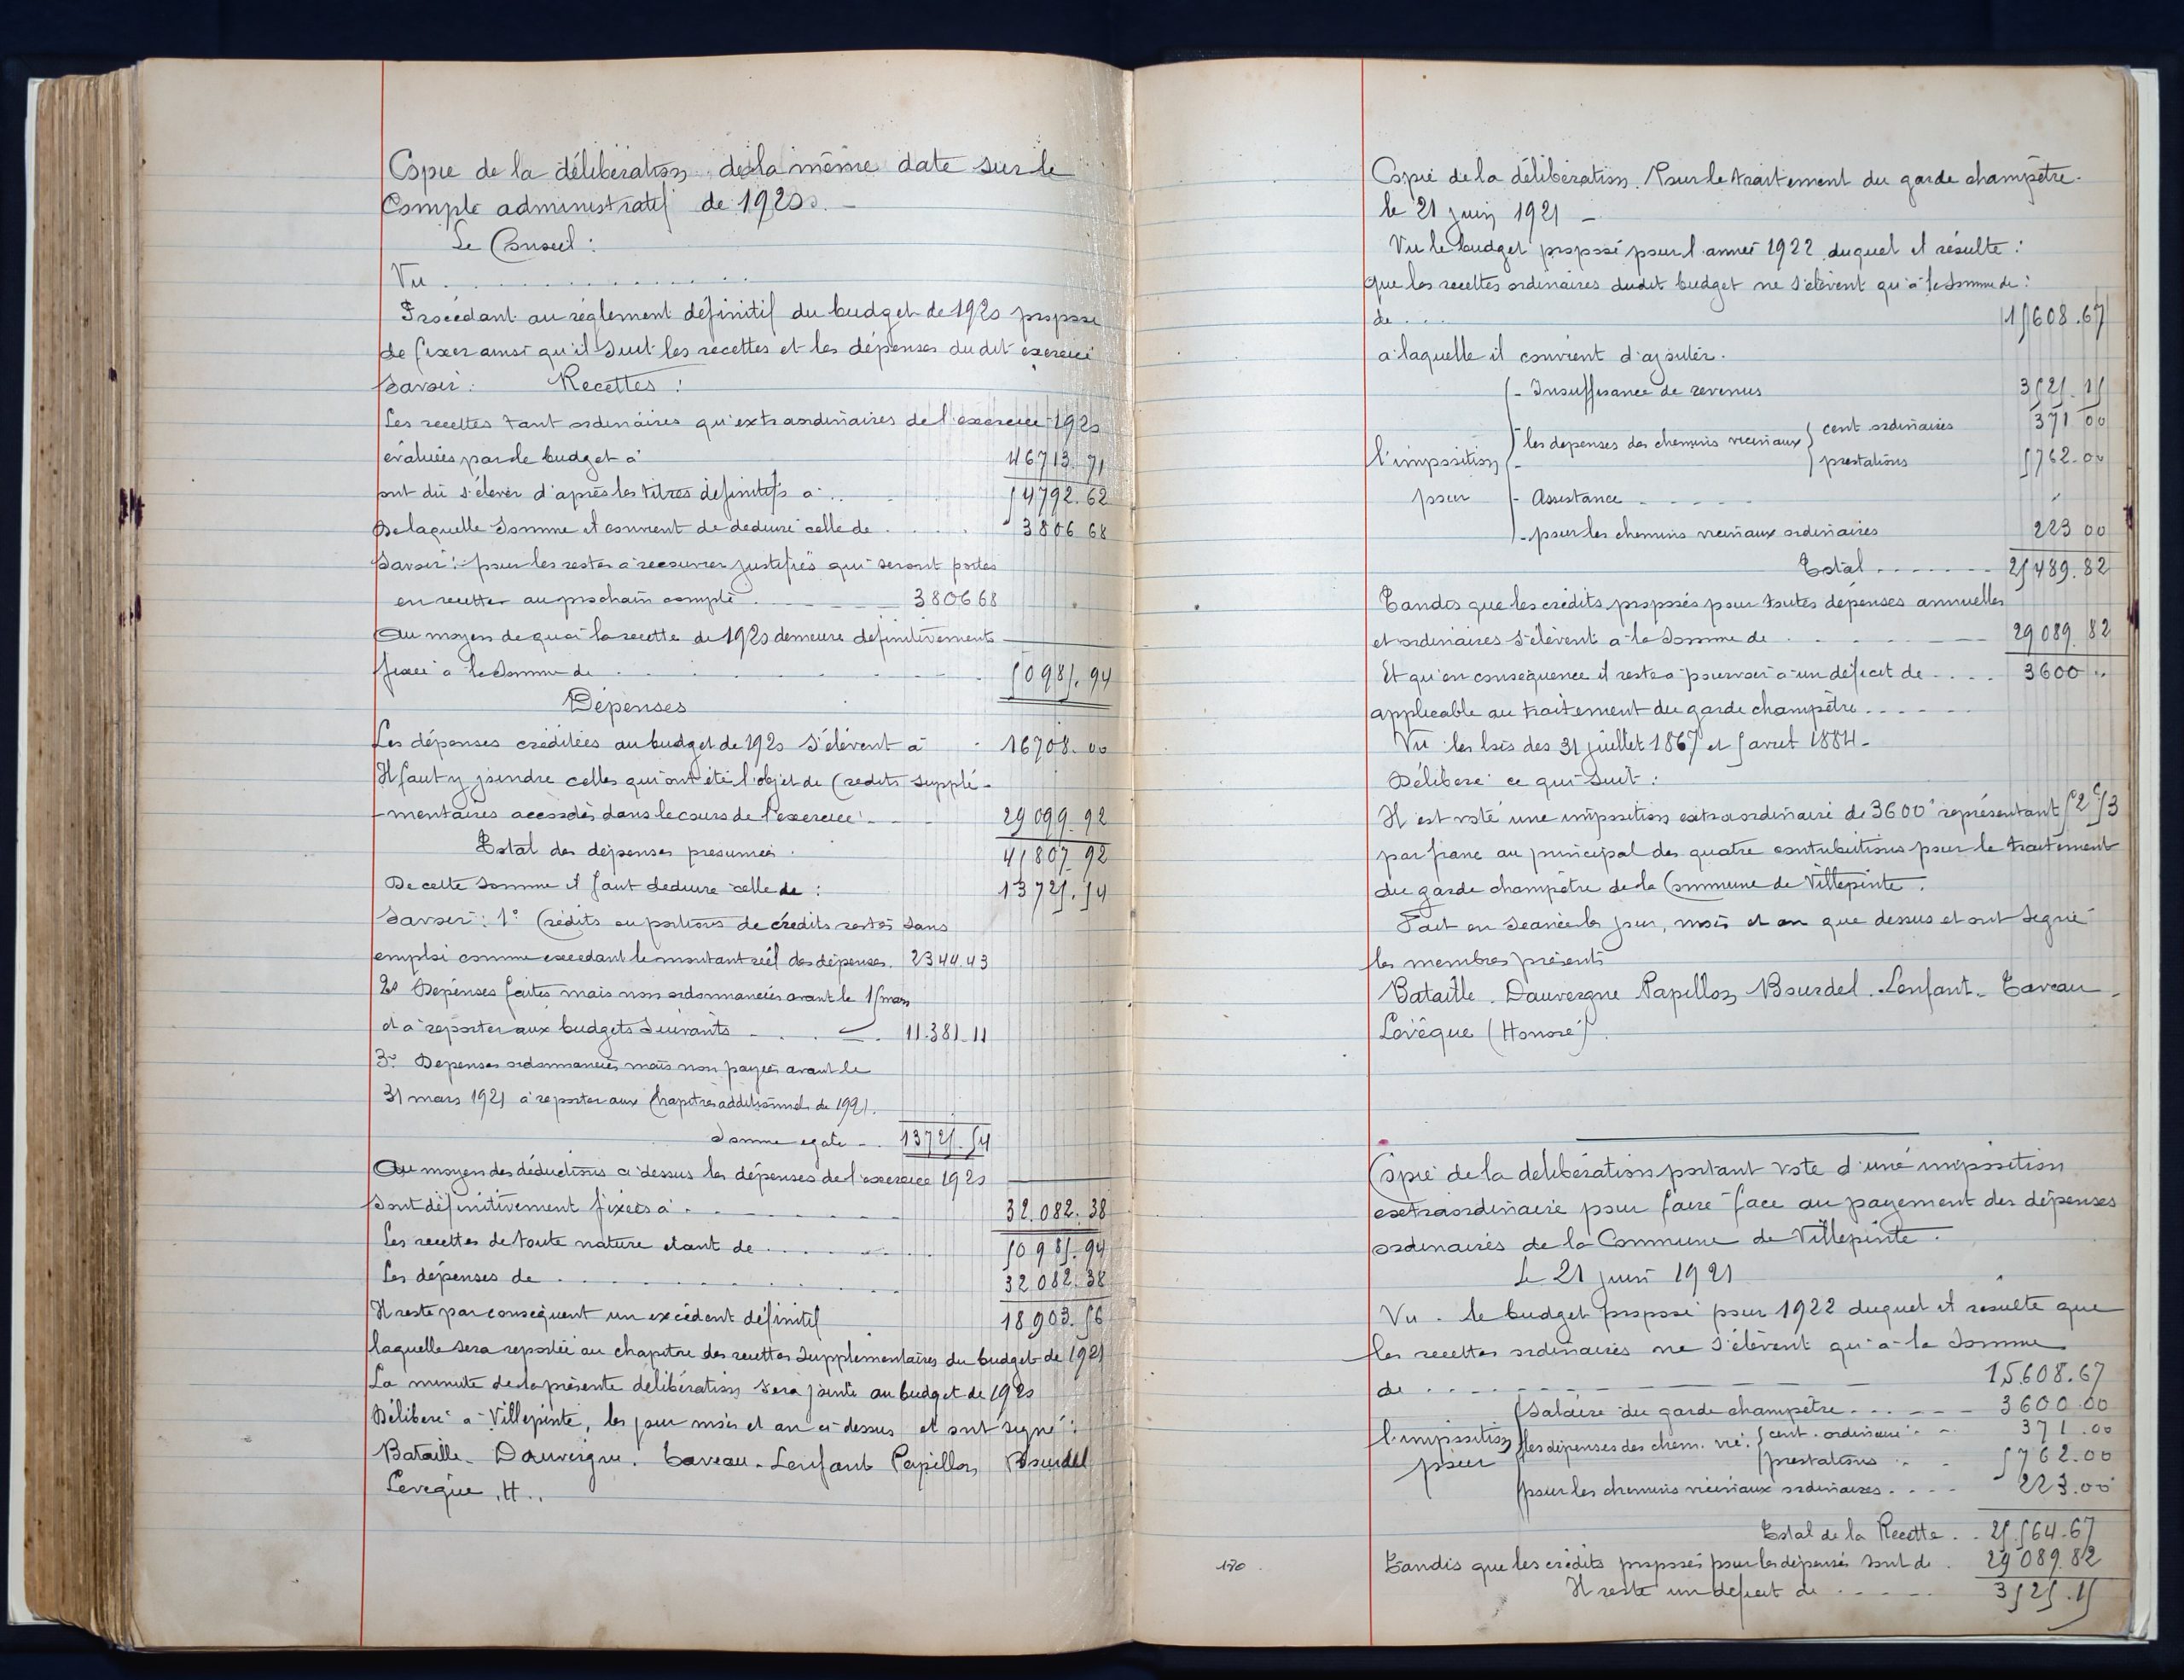 Copie de la délibération de la même date sur le
Compte administratif de 1920. -
Le Conseil :
Vu . . . . . . . . . . . . .
Procédant au réglement définitif du budget de 1920 propose
de fixer ainsi qu'il suit les recettes et les dépenses du dit exercice
Savoir : Recettes :
Les recettes tant ordinaires qu'extraordinaires de l'exercice 1920
évaluées par le budget à 46713.71
ont dû s'élever d'après les titres définitifs à . . . 54792.62
De laquelle somme il convient de déduire celle de . . . 3806 68
Savoir : pour les restes à recouvrer justifiés qui seront portés
en recettes au prochain compte . . . 3806.68
Au moyen de quoi la recette de 1920 demeure définitivement
fixée à la somme de . . . 50985.94
Dépenses
Les dépenses créditées au budget de 1920 s'élèvent à . 16708.00
Il faut y joindre celles qui ont été l'objet de Crédits supplé-
-mentaires accordés dans le cours de l'exercice . . . 29099.92
Total des dépenses présumées . 45807 92
De cette somme il faut déduire celle de : 13725.54
Savoir : 1° Crédits ou portions de crédits restés sans
emploi comme excédant le montant réel des dépenses. 2344.43
2° Dépenses faites mais non ordonnancées avant le 15 mars
et à reporter aux budgets suivants - . . - . 11.381.11
3° Dépenses ordonnancées mais non payées avant le
31 mars 1921 à reporter aux Chapitres additionnels de 1921.
Somme égale - . 13725.54
Au moyen des déductions ci dessus les dépenses de l'exercice 1920
sont définitivement fixées à . . . 32.082.38
Les recettes de toute nature étant de . . . 50985.94
Les dépenses de . . . 32082.38
Il reste par conséquent un excédent définitif 18903.56
laquelle sera reportée au chapitre des recettes supplémentaires du budget de 1921
La minute de la présente délibération sera jointe au budget de 1920
Délibéré à Villepinte, les jour mois et an ci-dessus et ont signé :
Bataille - Dauvergne . Taveau - Lenfant Papillon Bourdel
Levêque . H . .
Copie de la délibération Pour le traitement du garde champêtre .
le 21 juin 1921 -
Vu le budget proposé pour l'année 1922 duquel il résulte :
que les recettes ordinaires dudit budget ne s'élèvent qu'à la somme de :
de . . . 15608.67
à laquelle il convient d'ajouter .
- Insuffisance de revenus 3525.15
cent ordinaires 371 00
l'imposition - les depenses des chemins vicinaux prestations 5762.00
pour - Assistance - - - -
- pour les chemins vicinaux ordinaires 223 00
Total . . . . . . - 25489.82
Tandis que les crédits proposés pour toutes dépenses annuelles
et ordinaires s'élèvent à la somme de . . . 29089.82
Et qu'en conséquence il reste à pourvoir à un déficit de . . . . 3600 "
applicable au traitement du garde champêtre . . . . . .
Vu les lois des 31 juillet 1867 et 5 avril 1884 -
Délibère ce qui suit :
Il est voté une imposition extraordinaire de 3600f représentant 52c53
par franc au principal des quatre contributions pour le traitement
du garde champêtre de la Commune de Villepinte .
Fait en séance les jour, mois et an que dessus et ont signé
les membres présents
Bataille . Dauvergne Papillon Bourdel . Lenfant - Taveau -
Levêque (Honoré) .
Copie de la délibération portant vote d'une imposition
extraordinaire pour faire face au payement des dépenses
ordinaires de la Commune de Villepinte .
Le 21 juin 1921
Vu . le budget proposé pour 1922 duquel il résulte que
les recettes ordinaires ne s'élèvent qu'à la somme
de . . . 15.608.67
Salaire du garde champêtre . . . - - - 3600.00
l'imposition les dépenses des chem. vic. cent. ordinaire . - 371.00
pour prestations . - 5762.00
pour les chemins vicinaux ordinaires . . - - 223.00
Total de la Recette . . 25.564.67
170 .
Tandis que les crédits proposés pour les dépenses sont de . 29089.82
Il reste un déficit de . . - - - 3525.15